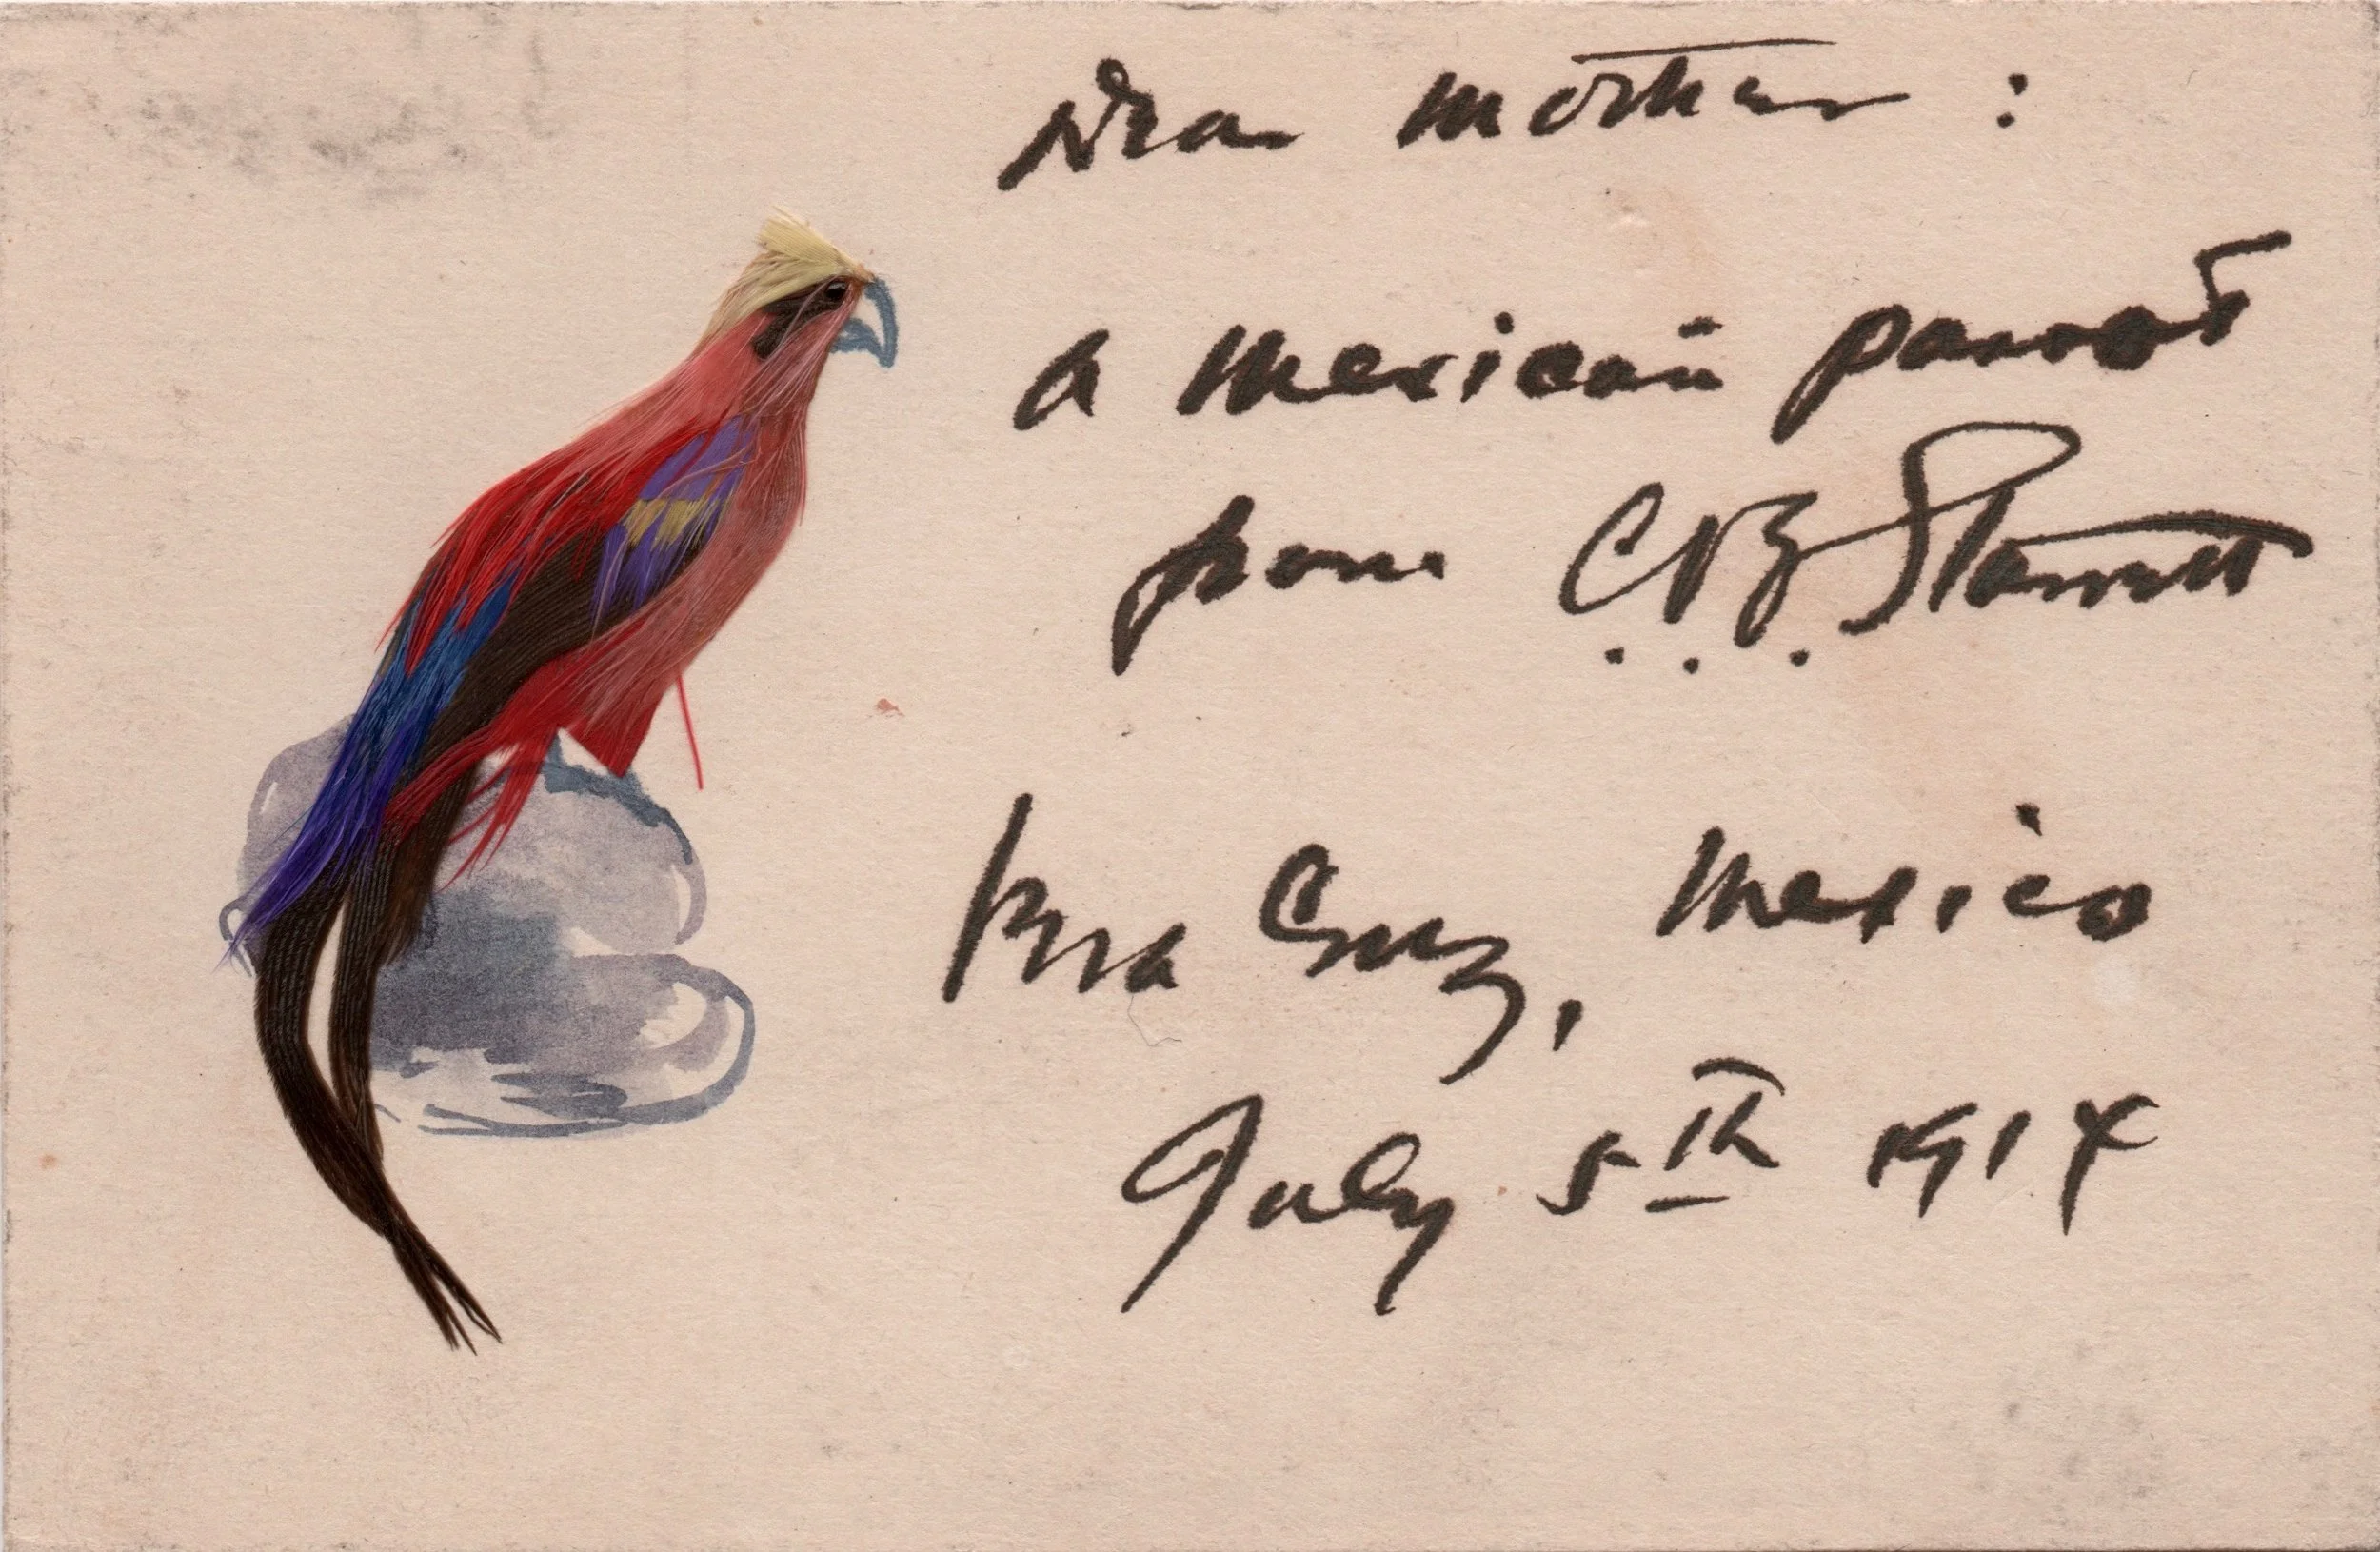 Dear mother :
A Mexican parrot
from C. V. Z. Starrett
Vera Cruz, Mexico
July 5th 1914